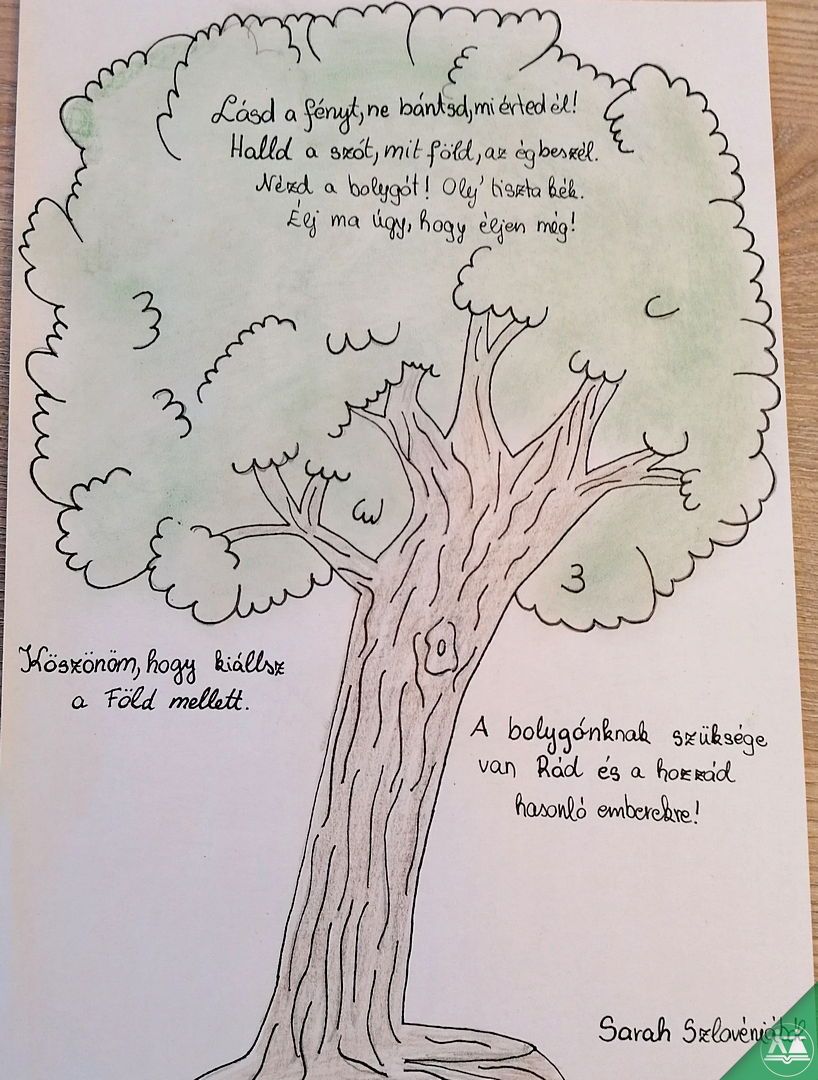 Lásd a fényt, ne bántsd, mi érted él!
Halld a szót, mit föld, az ég beszél.
Nézd a bolygót! Oly' tiszta kék.
Élj ma úgy, hogy éljen még!
Köszönöm, hogy kiállsz
a Föld mellett.
A bolygónknak szüksége
van Rád és a hozzád
hasonló emberekre!
Sarah Szlovéniából